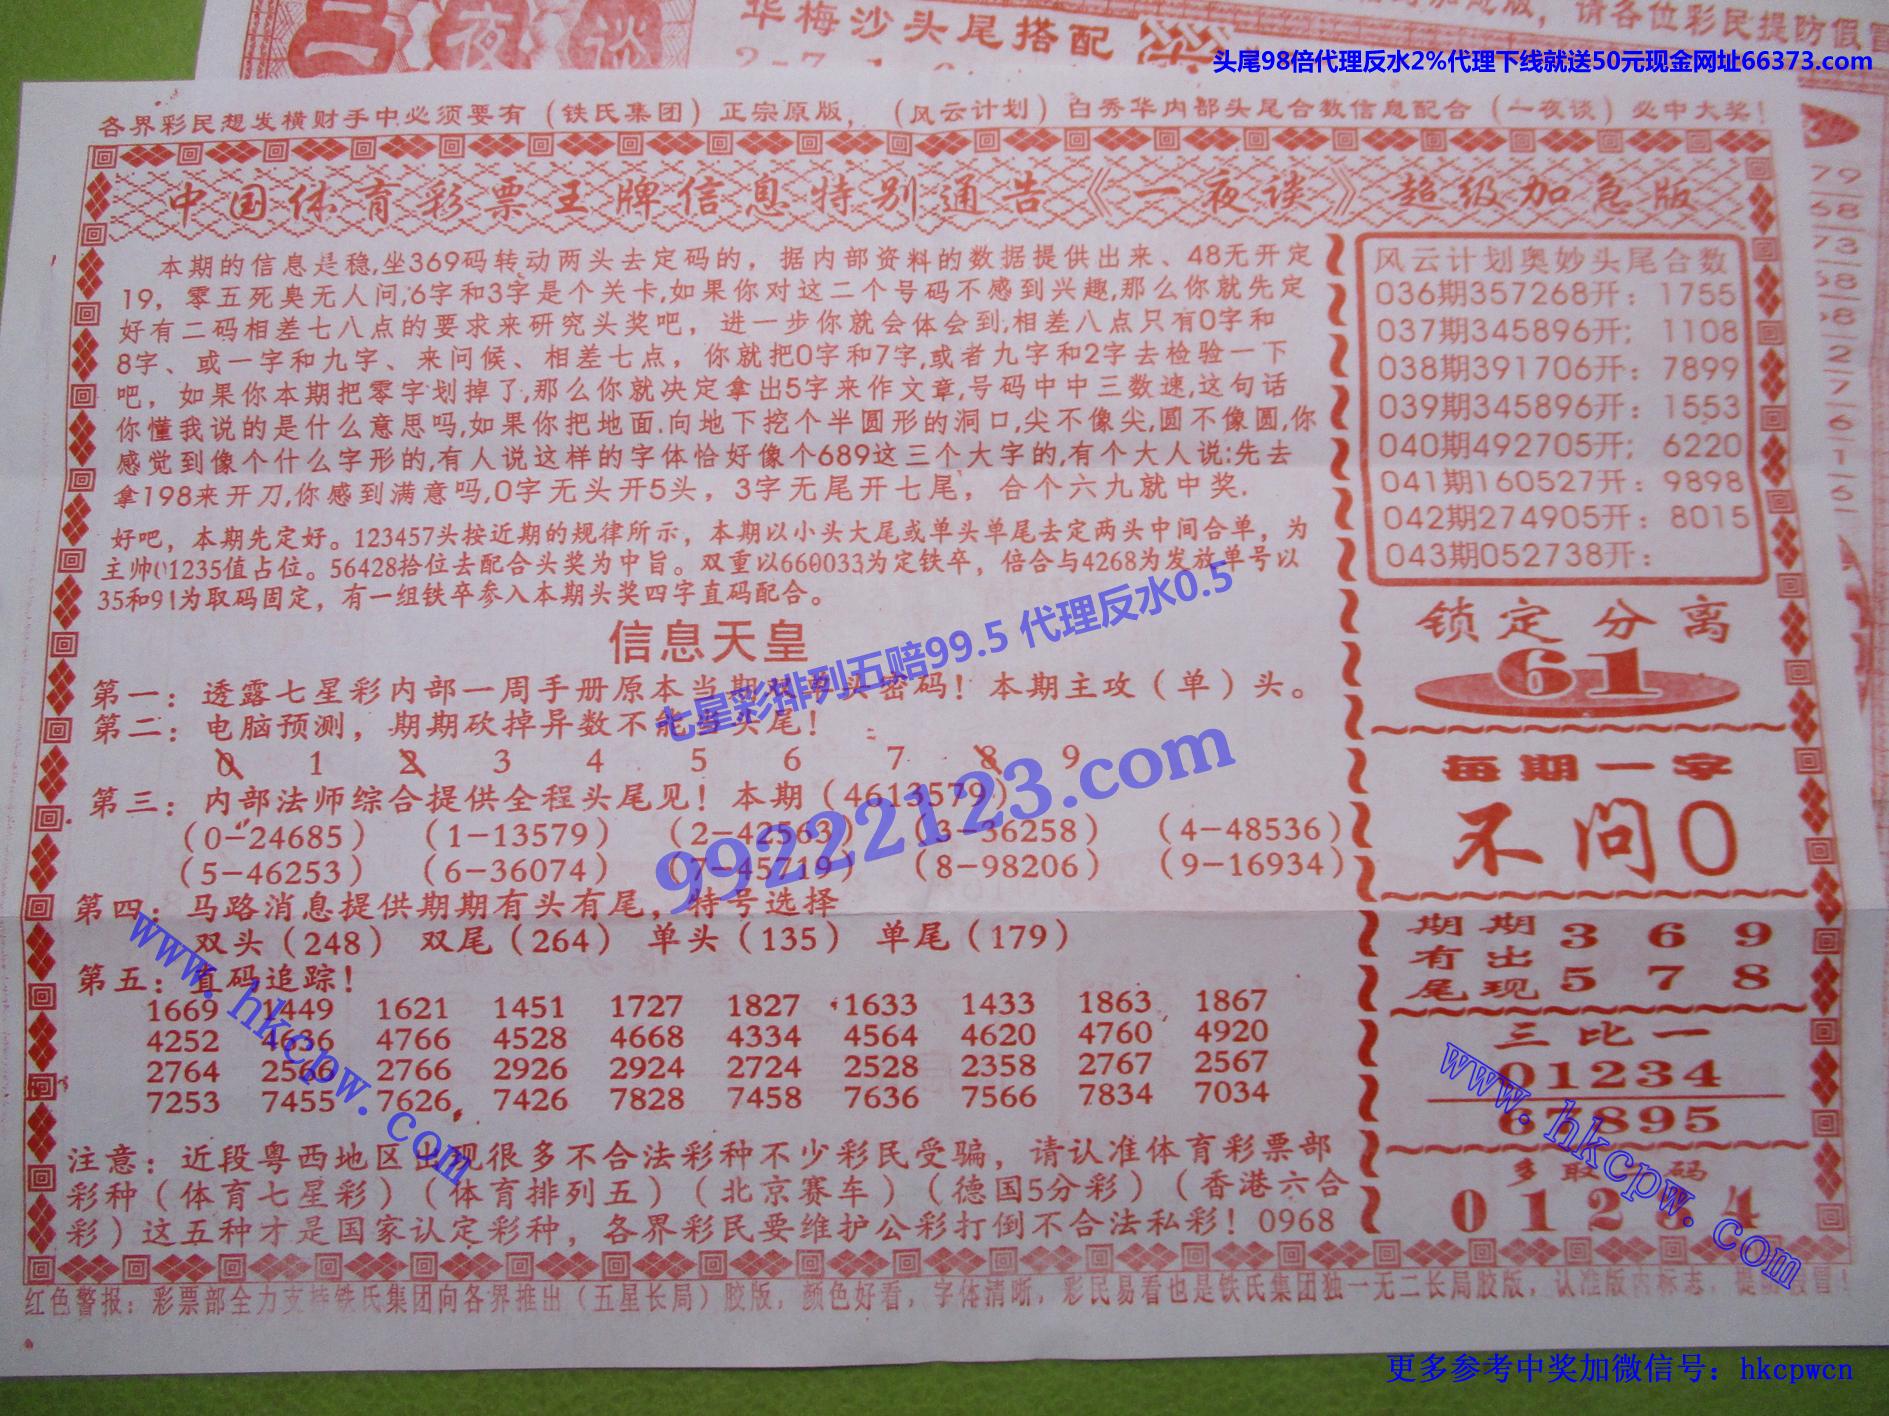 二夜谈
华梅沙头尾搭配
请各位彩民提防假冒
头尾98倍代理反水2%代理下线就送50元现金网址66373.com
各界彩民想发横财手中必须要有（铁氏集团）正宗原版，（风云计划）白秀华内部头尾合数信息配合（一夜谈）必中大奖！
中国体育彩票王牌信息特别通告《一夜谈》超级加急版
本期的信息是稳,坐369码转动两头去定码的，据内部资料的数据提供出来、48无开定
19，零五死臭无人问,6字和3字是个关卡,如果你对这二个号码不感到兴趣,那么你就先定
好有二码相差七八点的要求来研究头奖吧，进一步你就会体会到,相差八点只有0字和
8字、或一字和九字、来问候、相差七点，你就把0字和7字,或者九字和2字去检验一下
吧，如果你本期把零字划掉了,那么你就决定拿出5字来作文章,号码中中三数速,这句话
你懂我说的是什么意思吗,如果你把地面.向地下挖个半圆形的洞口,尖不像尖,圆不像圆,你
感觉到像个什么字形的,有人说这样的字体恰好像个689这三个大字的,有个大人说:先去
拿198来开刀,你感到满意吗,0字无头开5头，3字无尾开七尾，合个六九就中奖.
好吧，本期先定好。123457头按近期的规律所示，本期以小头大尾或单头单尾去定两头中间合单，为
主帅01235值占位。56428拾位去配合头奖为中旨。双重以660033为定铁卒，倍合与4268为发放单号以
35和91为取码固定，有一组铁卒参入本期头奖四字直码配合。
信息天皇
第一：透露七星彩内部一周手册原本当期双两头密码！本期主攻（单）头。
第二：电脑预测，期期砍掉异数不能当头尾！
0 1 2 3 4 5 6 7 8 9
第三：内部法师综合提供全程头尾见！本期（4613579）
（0-24685）（1-13579）（2-42563）（3-36258）（4-48536）
（5-46253）（6-36074）（7-45719）（8-98206）（9-16934）
第四：马路消息提供期期有头有尾，特号选择
双头（248） 双尾（264） 单头（135） 单尾（179）
第五：直码追踪！
1669 1449 1621 1451 1727 1827 1633 1433 1863 1867
4252 4636 4766 4528 4668 4334 4564 4620 4760 4920
2764 2566 2766 2926 2924 2724 2528 2358 2767 2567
7253 7455 7626 7426 7828 7458 7636 7566 7834 7034
注意：近段粤西地区出现很多不合法彩种不少彩民受骗，请认准体育彩票部
彩种（体育七星彩）（体育排列五）（北京赛车）（德国5分彩）（香港六合
彩）这五种才是国家认定彩种，各界彩民要维护公彩打倒不合法私彩！0968
风云计划奥妙头尾合数
036期357268开：1755
037期345896开；1108
038期391706开：7899
039期345896开：1553
040期492705开；6220
041期160527开：9898
042期274905开：8015
043期052738开：
锁定分离
61
每期一字
不问0
期期有出尾现
3 6 9
5 7 8
三比一
01234
67895
多取 码
0 1 2 3 4
红色警报：彩票部全力支持铁氏集团向各界推出（五星长局）胶版，颜色好看，字体清晰，彩民易看也是铁氏集团独一无二长局胶版，认准版内标志，提防假冒！
七星彩排列五赔99.5 代理反水0.5
99222123.com
www.hkcpw.com
www.hkcpw.com
更多参考中奖加微信号：hkcpwcn